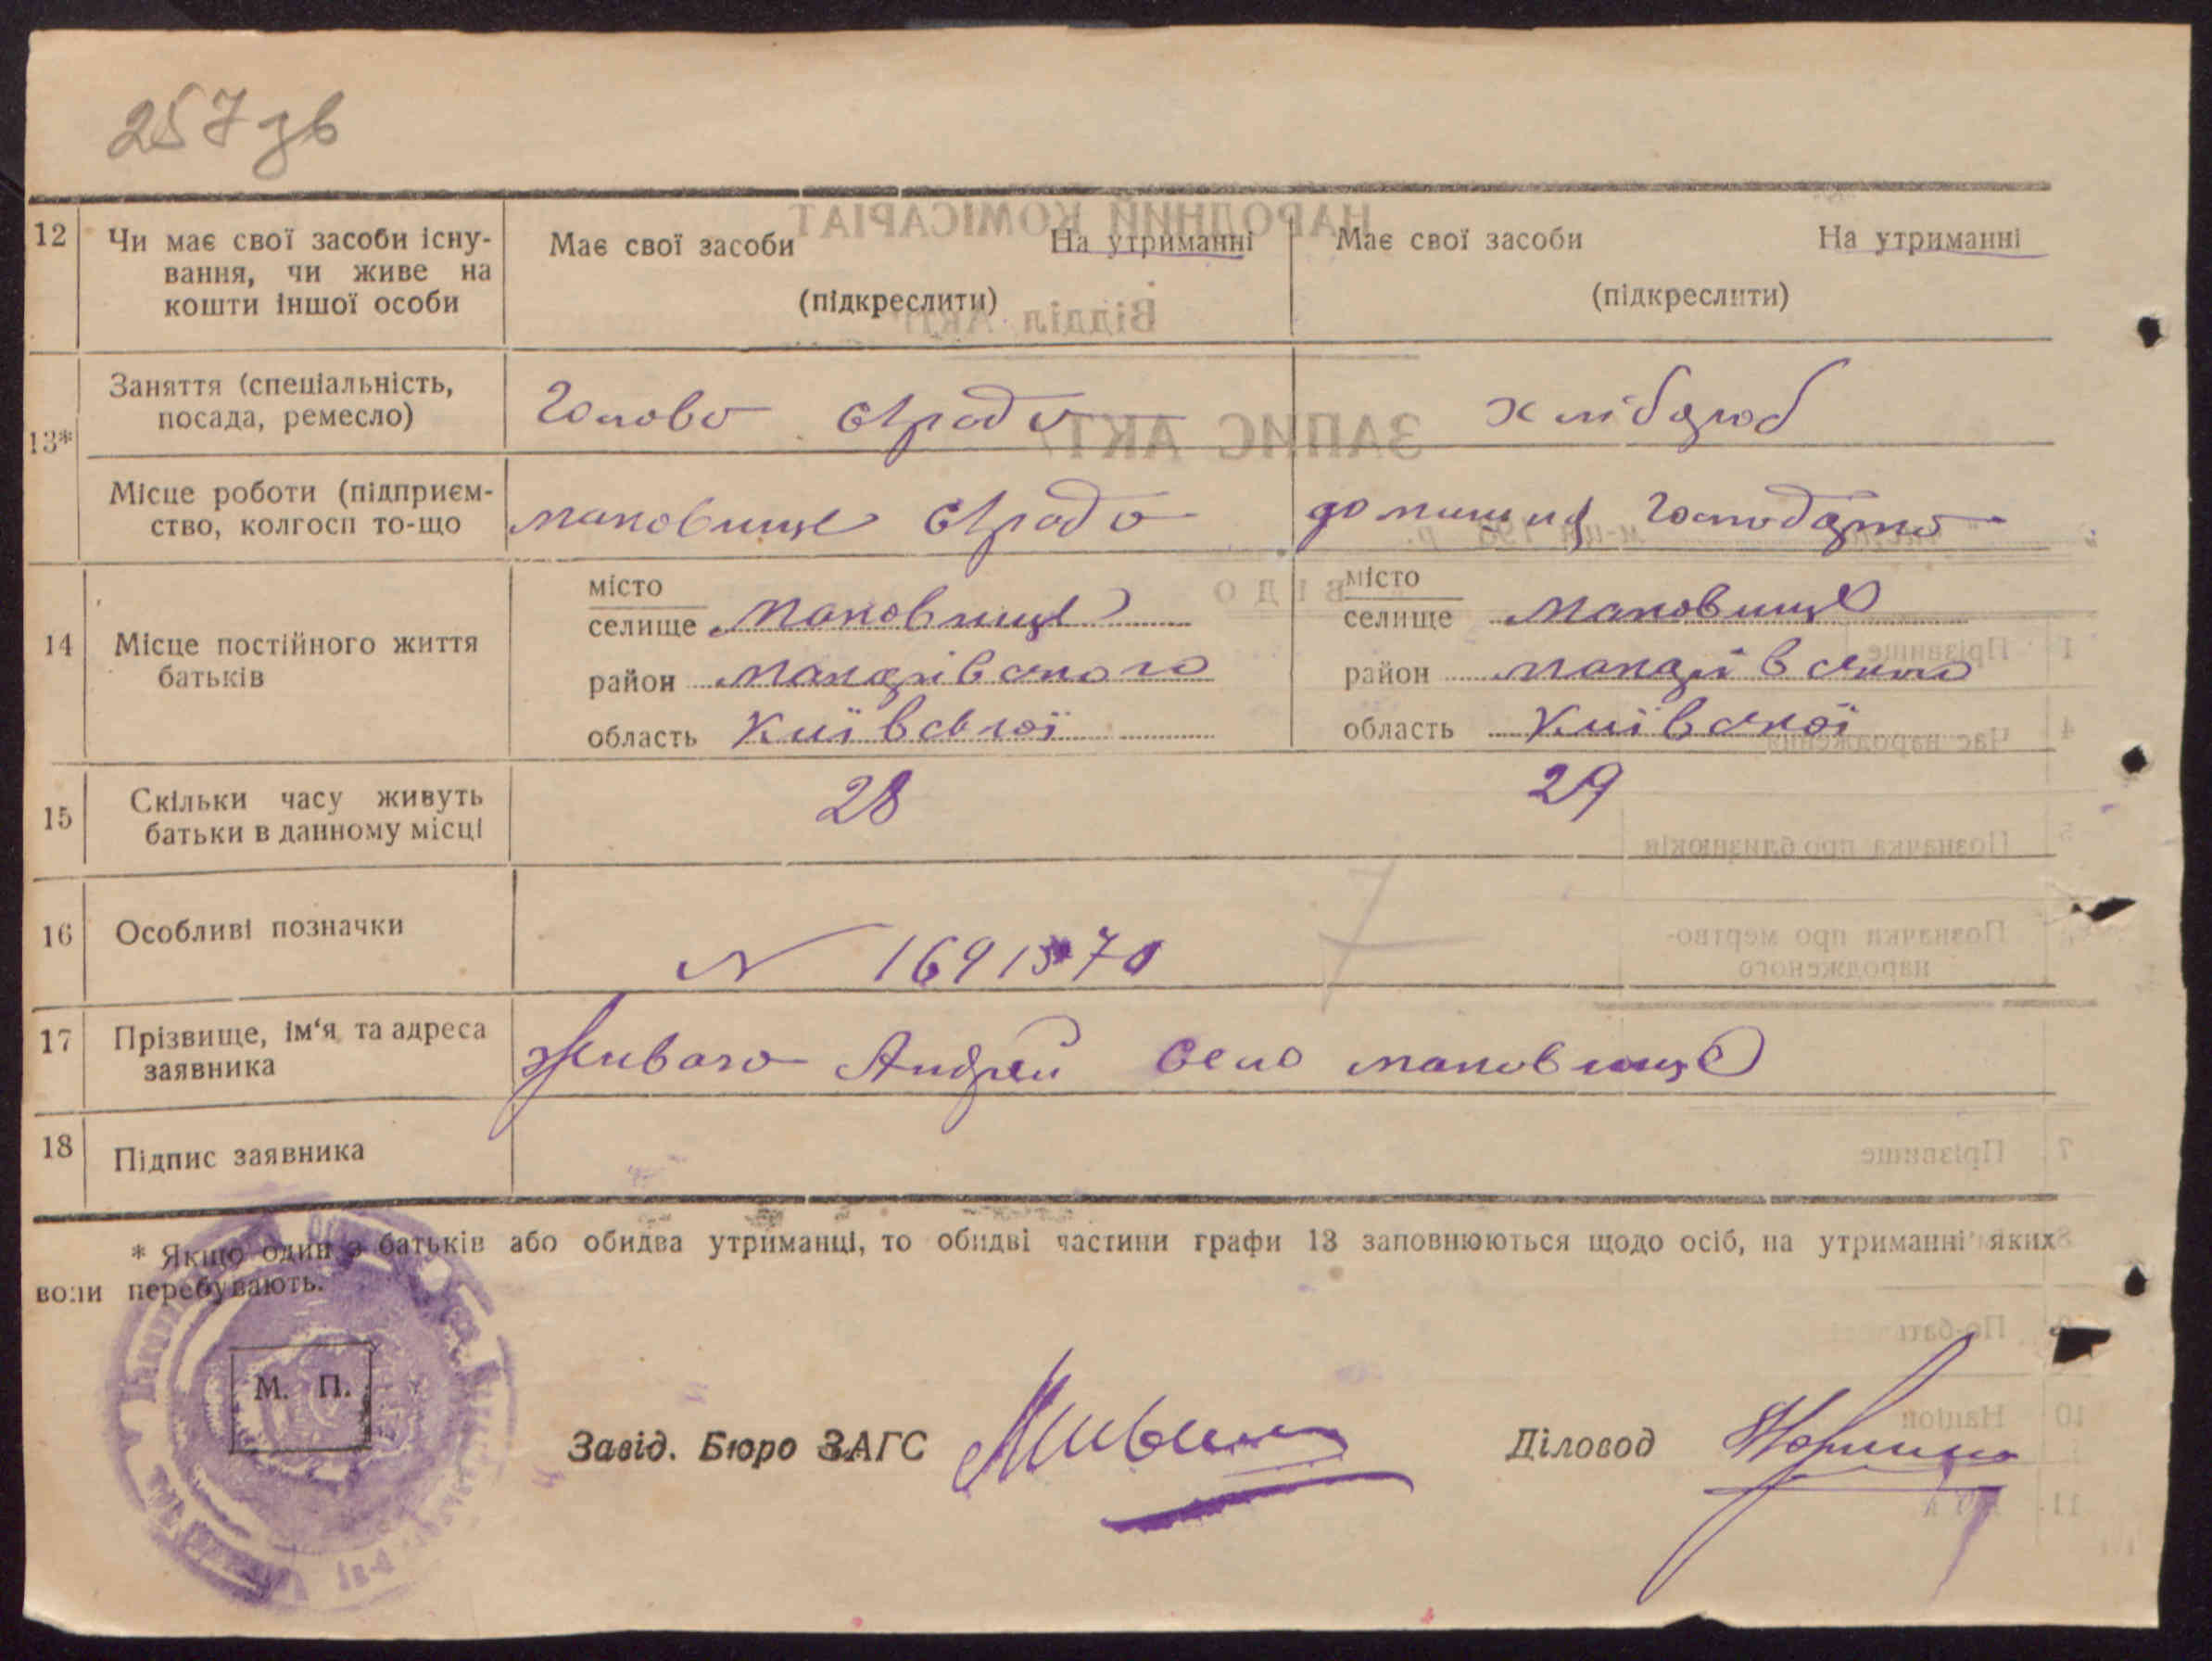 257 зв
12 Чи має свої засоби існу-
вання, чи живе на
кошти іншої особи
Має свої засоби На утриманні
(підкреслити)
Має свої засоби На утриманні
(підкреслити)
13*
Заняття (спеціальність,
посада, ремесло)
Голова с/ради
хлібороб
Місце роботи (підприєм-
ство, колгосп то-що
маковище с/рада
14 Місце постійного життя
батьків
місто
селище Маковище
район Макарівського
область Київської
місто
селище Маковище
район Макарівського
область Київської
15 Скільки часу живуть
батьки в данному місці
28
29
16 Особливі позначки
N 1691370
17 Прізвище, ім‘я та адреса
заявника
Живаго Андрей село маковище
18 Підпис заявника
* Якщо один з батьків або обидва утриманці, то обидві частини графи 13 заповнюються щодо осіб, на утриманні яких
вони перебувають.
М. П.
Завід. Бюро ЗАГС
Діловод